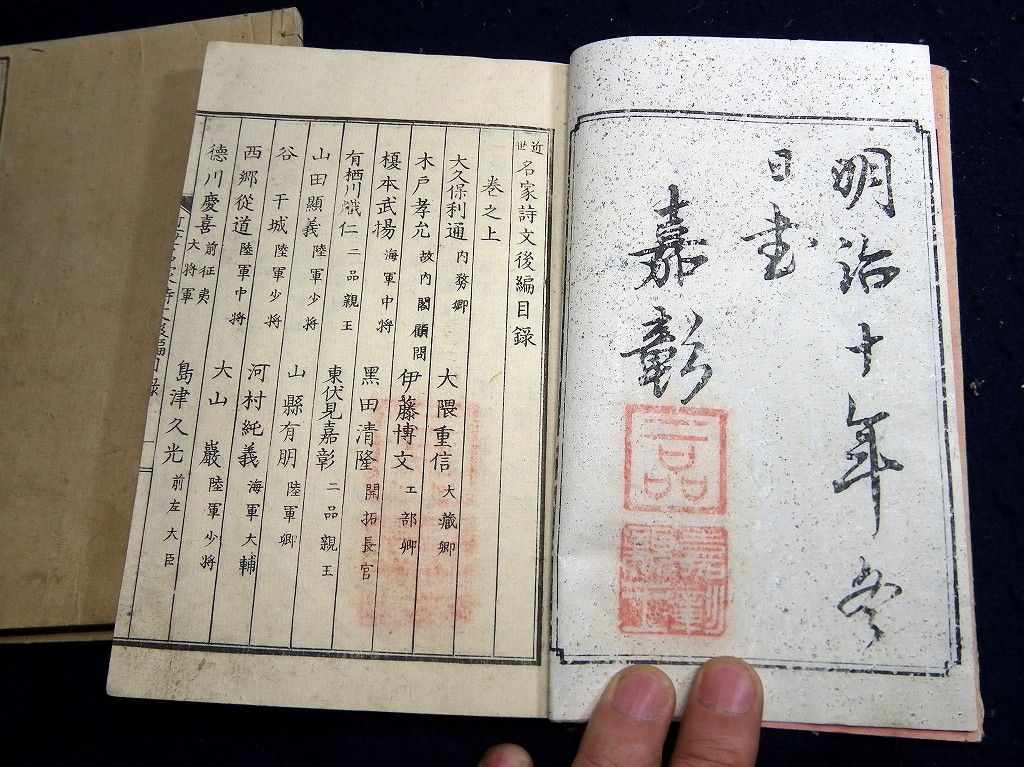 明治十年冬
日書
嘉彰
二品
近世名家詩文後編目録
巻之上
大久保利通 内務卿 大隈重信 大藏卿
木戸孝允 故内閣顧問 伊藤博文 工部卿
榎本武揚 海軍中將 黒田清隆 開拓長官
有栖川熾仁 二品親王 東伏見嘉彰 二品親王
山田顯義 陸軍少將 山縣有朋 陸軍卿
谷干城 陸軍少將 河村純義 海軍大輔
西郷從道 陸軍中將 大山巖 陸軍少將
德川慶喜 前征夷大將軍 島津久光 前左大臣